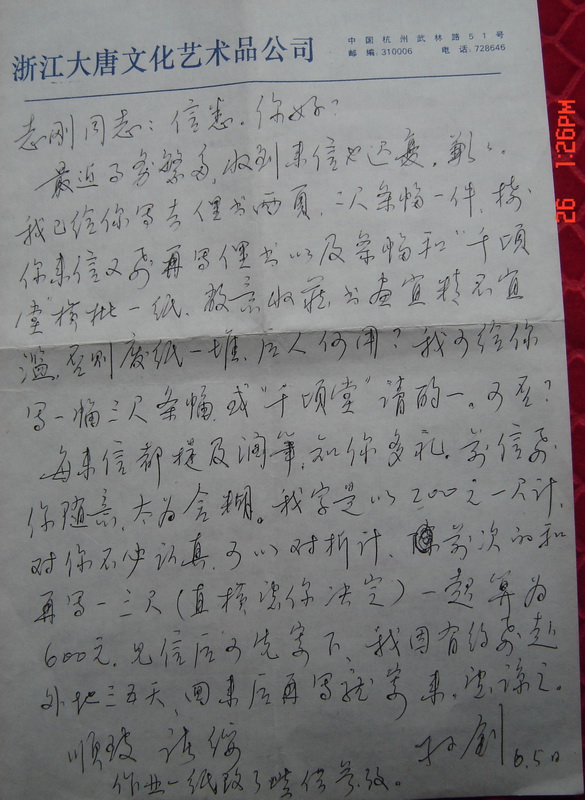 浙江大唐文化艺术品公司
中国杭州武林路51号
邮编:310006 电话:728646
志刚同志:信悉。你好!
最近事务繁多,收到来信也迟复。歉歉。
我已给你写去俚书两页,二尺条幅一件,接
你来信又要再写俚书以及条幅和“千顷
堂”横批一纸。我意收藏书画宜精不宜
滥,否则废纸一堆,后人何用?我可给你
写一幅三尺条幅,或“千顷堂”请酌一。可否?
每来信都提及润笔,知你多礼。前信要
你随意,太为含糊。我字是以200元一尺计,
对你不必认真,可以对折计,前次的和
再写一三尺(直横望你决定)一起算为
600元。见信后可先寄下,我因有约要赴
外地三五天,回来后再写就寄来。望谅之。
顺致 请绥
6.5日
作业一纸改了些供参考。
26 1:26PM